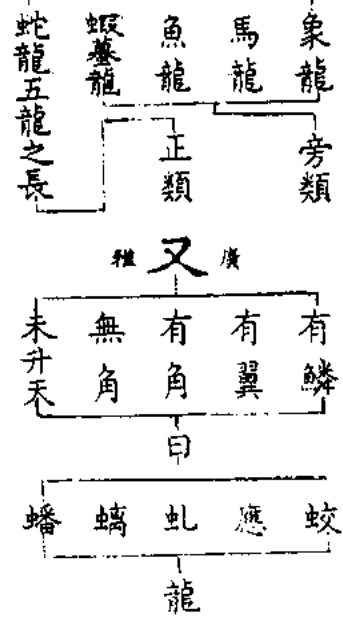 象龍
馬龍
魚龍
蝦蟇龍
蛇龍五龍之長
旁類
正類
廣
又
雅
有鱗
有翼
有角
無角
未升天
曰
蛟
應
虬
螭
蟠
龍